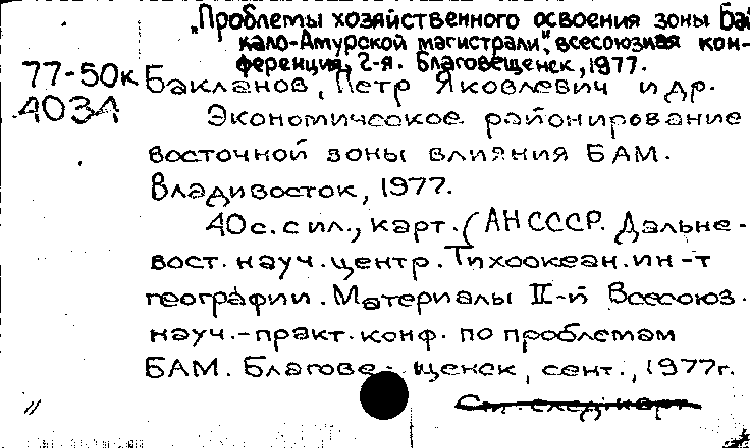 „Проблемы хозяйственного освоения зоны Бай
кало-Амурской магистрали", всесоюзная кон-
ференция, 2-я. Благовещенск, 1977.
77-50к Бакланов, Петр Яковлевич и др.
4034 Экономическое районирование
восточной зоны влияния БАМ.
Владивосток, 1977.
40 с. с ил., карт. (АН СССР. Дальне-
вост. науч. центр. Тихоокеан. ин-т
географии. Материалы II-й Всесоюз.
науч.-практ. конф. по проблемам
БАМ. Благовещенск, сент., 1977г.
См. след. карт